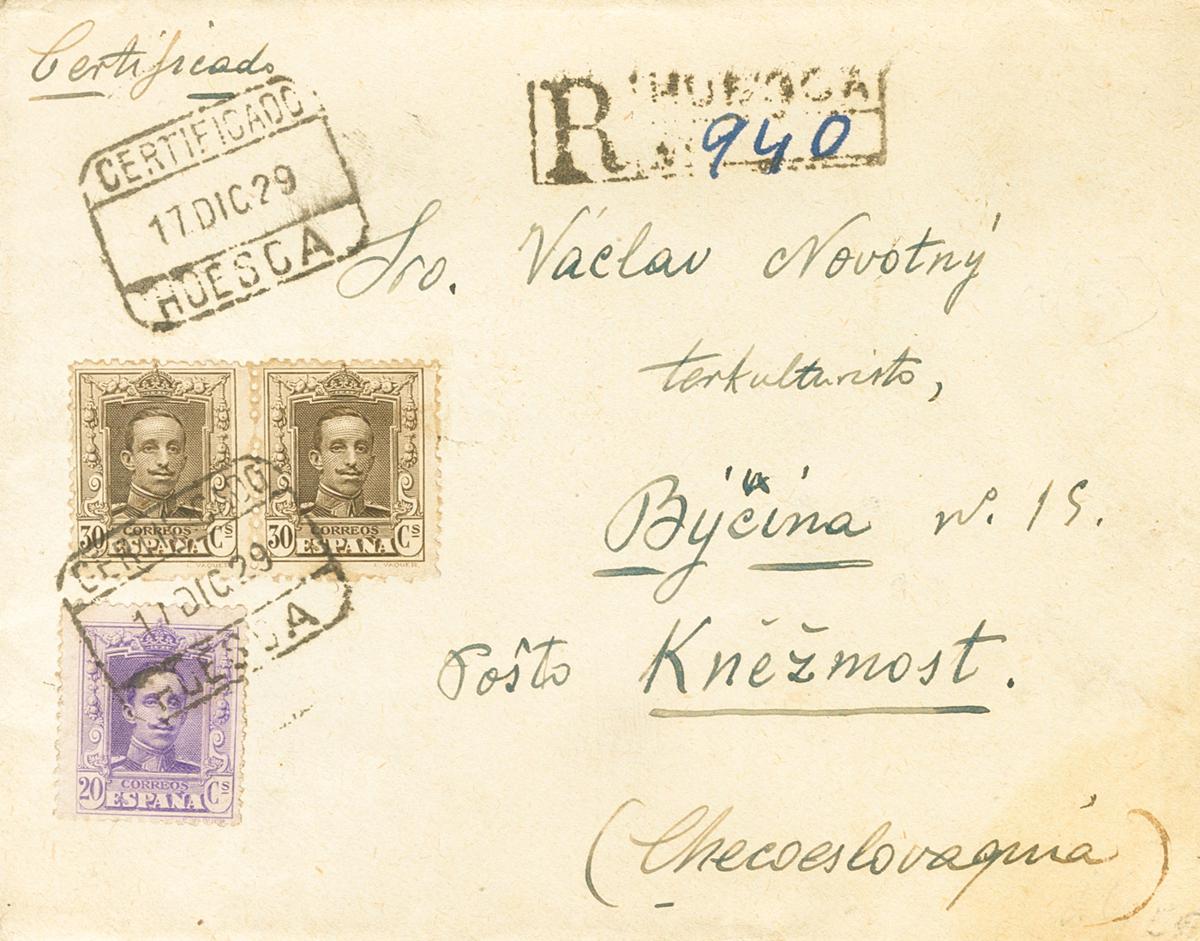 Certificado
CERTIFICADO
17.DIC.29
HUESCA
R HUESCA
940
Sro. Václav Novotný
terkulturisto,
Býčina nº. 15.
Pošto Kněžmost.
(Checoeslovaquiá)
30 CORREOS ESPAÑA Cs
E. VAQUER
30 CORREOS ESPAÑA Cs
E. VAQUER
CERTIFICADO
17 DIC 29
HUESCA
20 CORREOS ESPAÑA Cs